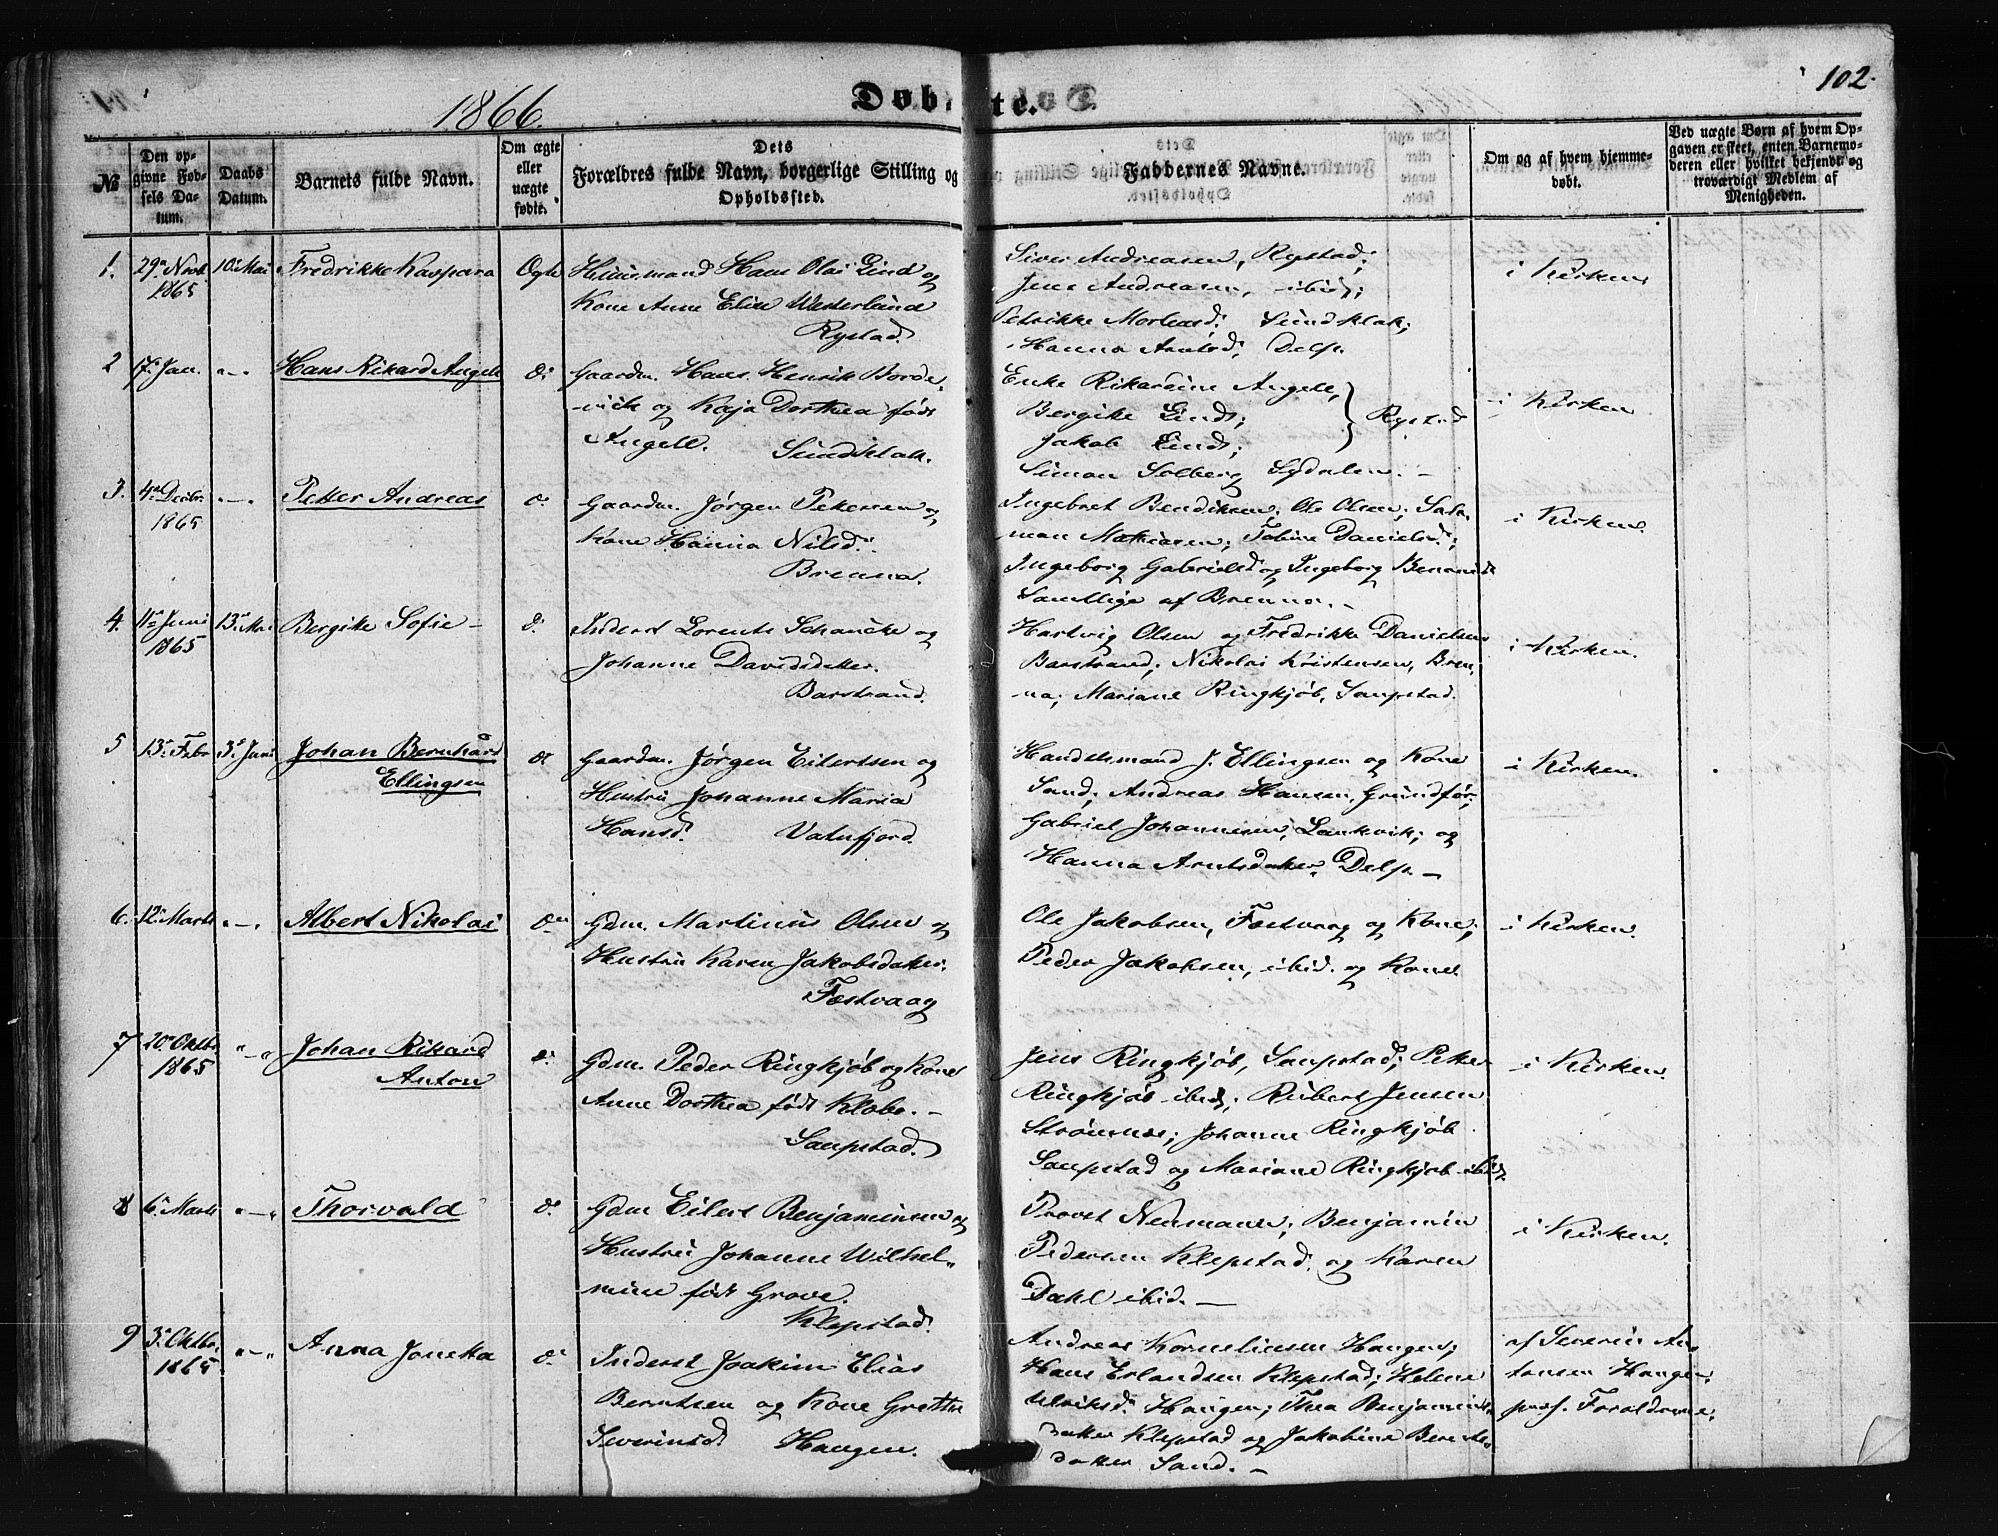 102.
1866.
Døbte.
№
Den opgivne Fødsels Datum.
Daabs Datum.
Barnets fulde Navn.
Om ægte eller uægte fødte.
Dets Forældres fulde Navn, borgerlige Stilling og Opholdssted.
Faddernes Navne.
Om og af hvem hjemmedøbt.
Ved uægte Børn af hvem Opgaven er skeet, enten Barnemoderen eller hvilket bekjendt og troværdigt Medlem af Menigheden.
1. 29de Novbr 1865 10de Mai Fredrikke Kaspara Ægte
Huusmand Hans Olai Lind og
Kone Anne Elise Westerlund
Rystad.
Siver Andreasen, Rystad;
Jens Andreasen, ibid;
Petrikke Mortensd. Sundklak;
Hanna Arntsd, Delp.
i Kirken
2 17de Jan. "—" Hans Rikard Angell do
Gaardm. Hans Henrik Borde-
vich og Kaja Dorthea født
Angell. Sundklak.
Enke Rikardine Angell,
Bergitte Lind;
Jakob Lind;
Rystad
Simon Solberg Sydalen. —
i Kirken
3. 4de Decbr. 1865 "—" Petter Andreas do
Gaardm. Jørgen Petersen og
Kone Hanna Nilsd.
Brenna.
Ingebret Bendiksen; Ole Olsen; Salo-
mon Mathiasen; Tobine Danielsd.;
Ingeborg Gabrielsd og Ingeborg Benonisd
Samtlige af Brenna. —
i Kirken.
4. 11te Juni 1865 13de Mai Bergitte Sofie — do
Inderst Lorents Schancke og
Johanne Davidsdatter.
Barstrand.
Hartvig Olsen og Fredrikke Danielsen
Barstrand; Nikolai Kristensen, Bren-
na; Mariane Ringkjøb, Saupstad.
i Kirken.
5 13de Febr 3die Juni Johan Bernhard
Ellingsen do
Gaardm. Jørgen Eilertsen og
Hustru Johanne Maria
Hansd. Vatnfjord.
Handelsmand J. Ellingsen og Kone
Sand; Andreas Hansen, Grundfør;
Gabriel Johannesen, Laukvik; og
Hanna Arntsdatter, Delp. —
i Kirken.
6. 12te Marts "—" Albert Nikolai do
Gdm. Martinus Olsen og
Hustru Karen Jakobsdatter.
Festvaag
Ole Jakobsen, Festvaag og Kone;
Peder Jakobsen, ibid. og Kone
i Kirken.
7 20de Oktbr 1865 "—" Johan Rikard
Anton do
Gdm. Peder Ringkjøb og Kone
Anne Dorthea født Klobo. —
Saupstad.
Jens Ringkjøb, Saupstad; Petter
Ringkjøb ibid; Rubert Jensen
Strømnæs; Johanne Ringkjøb
Saupstad og Mariane Ringkjøb ibid.
i Kirken.
8 6te Marts "—" Thorvald do
Gdm Eilert Benjaminsen og
Hustru Johanne Wilhel-
mine født Grove.
Klepstad.
Provst Neumann; Benjamin
Pedersen Klepstad. og Karen
Dahl ibid. —
i Kirken.
9 3die Oktbr. 1865 "—" Anna Jonetta do
Inderst Joakim Elias
Berntsen og Kone Grethe
Severinsd. Haugen.
Andreas Korneliusen Haugen;
Hans Erlandsen Klepstad; Helene
Ulriksd. Haugen; Thea Benjamins-
datter Klepstad og Jakobine Bernts-
datter Sand. —
af Severin An-
tonsen Haugen
præs. Forældrene.